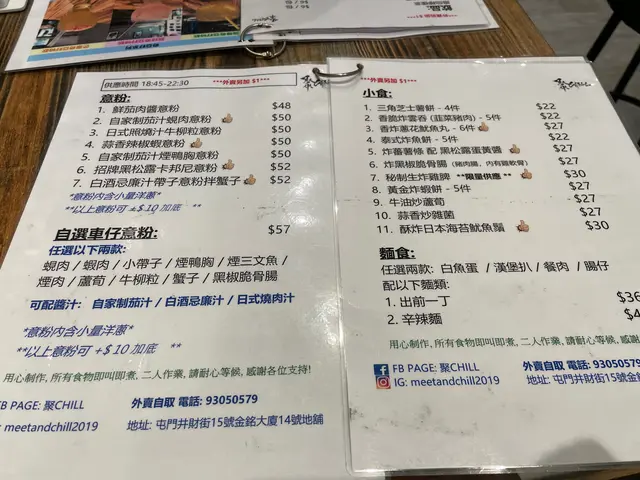 供應時間 18:45-22:30
***外賣另加 $1***
意粉:
1. 鮮茄肉醬意粉 $48
2. 自家制茄汁蜆肉意粉 $50
3. 日式照燒汁牛柳粒意粉 $50
4. 蒜香辣椒蝦意粉 $50
5. 自家制茄汁煙鴨胸意粉 $50
6. 招牌黑松露卡邦尼意粉 $52
7. 白酒忌廉汁帶子意粉拌蟹子 $52
*意粉內含小量洋蔥*
**以上意粉可 +$10 加底 **
自選車仔意粉: $57
任選以下兩款:
蜆肉 / 蝦肉 / 小帶子 / 煙鴨胸 / 煙三文魚 /
煙肉 / 蘆荀 / 牛柳粒 / 蟹子 / 黑椒脆骨腸
可配醬汁: 自家制茄汁 / 白酒忌廉汁 / 日式燒肉汁
*意粉內含小量洋蔥*
**以上意粉可 +$10 加底 **
用心制作, 所有食物即叫即煮, 二人作業, 請耐心等候, 感謝各位支持!
FB PAGE: 聚CHILL
外賣自取 電話: 93050579
: meetandchill2019
地址: 屯門井財街15號金銘大廈14號地舖
***外賣另加 $1***
小食:
1. 三角芝士薯餅 - 4件 $22
2. 香脆炸雲吞 (韮菜豬肉) - 5件 $22
3. 香炸蔥花魷魚丸 - 6件 $27
4. 泰式炸魚餅 - 5件 $22
5. 炸蕃薯條 配 黑松露蛋黃醬 $27
6. 炸黑椒脆骨腸 (豬肉腸, 內有雞軟骨) $27
7. 秘制生炸雞脾 **限量供應** $30
8. 黃金炸蝦餅 - 5件 $27
9. 牛油炒蘆荀 $27
10. 蒜香炒雜菌 $27
11. 酥炸日本海苔魷魚鬚 $30
麵食:
任選兩款: 白魚蛋 / 漢堡扒 / 餐肉 / 腸仔
配以下麵類:
1. 出前一丁 $36
2. 辛辣麵 $4
用心制作, 所有食物即叫即煮, 二人作業, 請耐心等候, 感謝
FB PAGE: 聚CHILL
外賣自取 電話: 93050579
IG: meetandchill2019
地址: 屯門井財街15號金銘